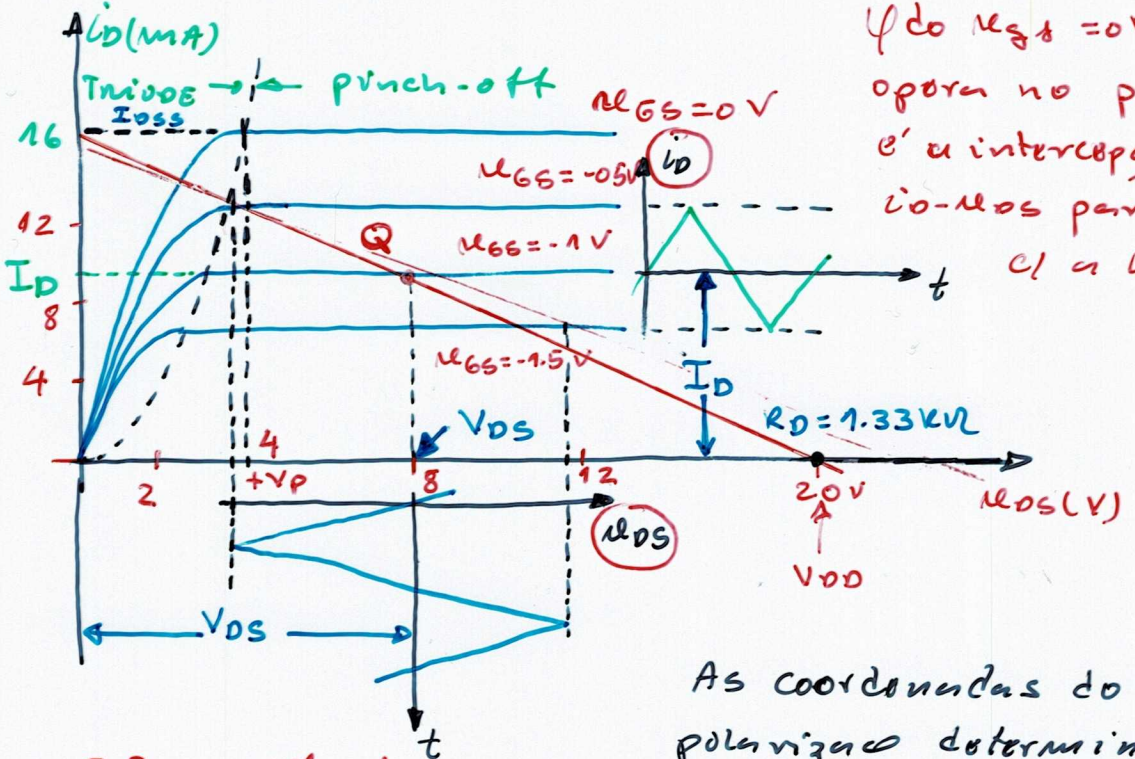 iD(mA)
TRIODE → ← pinch-off
IDSS
16
uGS=0V
uGS=-05V
iD
12
Q
uGS=-1V
ID
t
8
uGS=-1.5V
4
ID
VDS
RD=1.33KΩ
2
4
+VP
8
12
20V
uDS(V)
uDS
VDD
VDS
t
do ugs =0V
opera no p
é a intercep
iD-uDS par
c/ a
As coordenadas do
polarizac determin